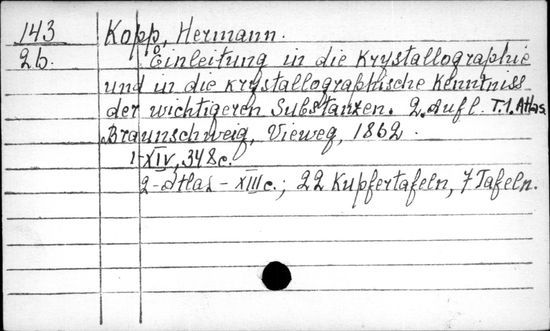 143 Kopp, Hermann.
26. Einleitung in die Krystallographie
und in die Krystallographische Kenntniss
der wichtigeren Substanzen. 2. Aufl. T.1. Atlas
Braunschweig, Vieweg, 1862.
1-XIV, 348c.
2-Atlas - XIIIc.; 22 Kupfertafeln, 7 Tafeln.